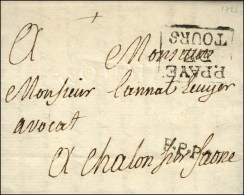 A Monsieur
P.PAYÉ
TOURS
Monsieur Lannat Lecuyer
avocat
A Chalon sur Saone